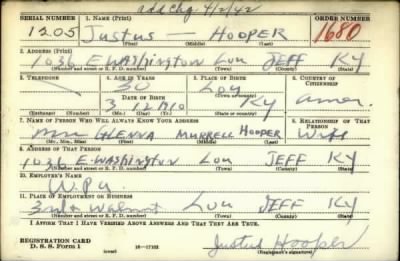 add Chg 4/2/42
SERIAL NUMBER 1. NAME (Print) ORDER NUMBER
1205 Justus — HOOPER 1680
(First) (Middle) (Last)
2. ADDRESS (Print)
1036 E WAShington Lou JEFF Ky
(Number and street or R. F. D. number) (Town) (County) (State)
3. TELEPHONE 4. AGE IN YEARS 5. PLACE OF BIRTH 6. COUNTRY OF CITIZENSHIP
30 Lou
DATE OF BIRTH (Town or county)
3 12 1910 Ky Amer.
(Exchange) (Number) (Mo.) (Day) (Yr.) (State or country)
7. NAME OF PERSON WHO WILL ALWAYS KNOW YOUR ADDRESS 8. RELATIONSHIP OF THAT PERSON
Mrs GLENNA MURRELL HOOPER Wife
(Mr., Mrs., Miss) (First) (Middle) (Last)
9. ADDRESS OF THAT PERSON
1036 E-WAShington Lou JEFF Ky
(Number and street or R. F. D. number) (Town) (County) (State)
10. EMPLOYER'S NAME
W.P.A.
11. PLACE OF EMPLOYMENT OR BUSINESS
3rd & Walnut Lou JEFF Ky
(Number and street or R. F. D. number) (Town) (County) (State)
I AFFIRM THAT I HAVE VERIFIED ABOVE ANSWERS AND THAT THEY ARE TRUE.
REGISTRATION CARD
D. S. S. Form 1 (over) 16—17105 Justus Hooper
(Registrant's signature)